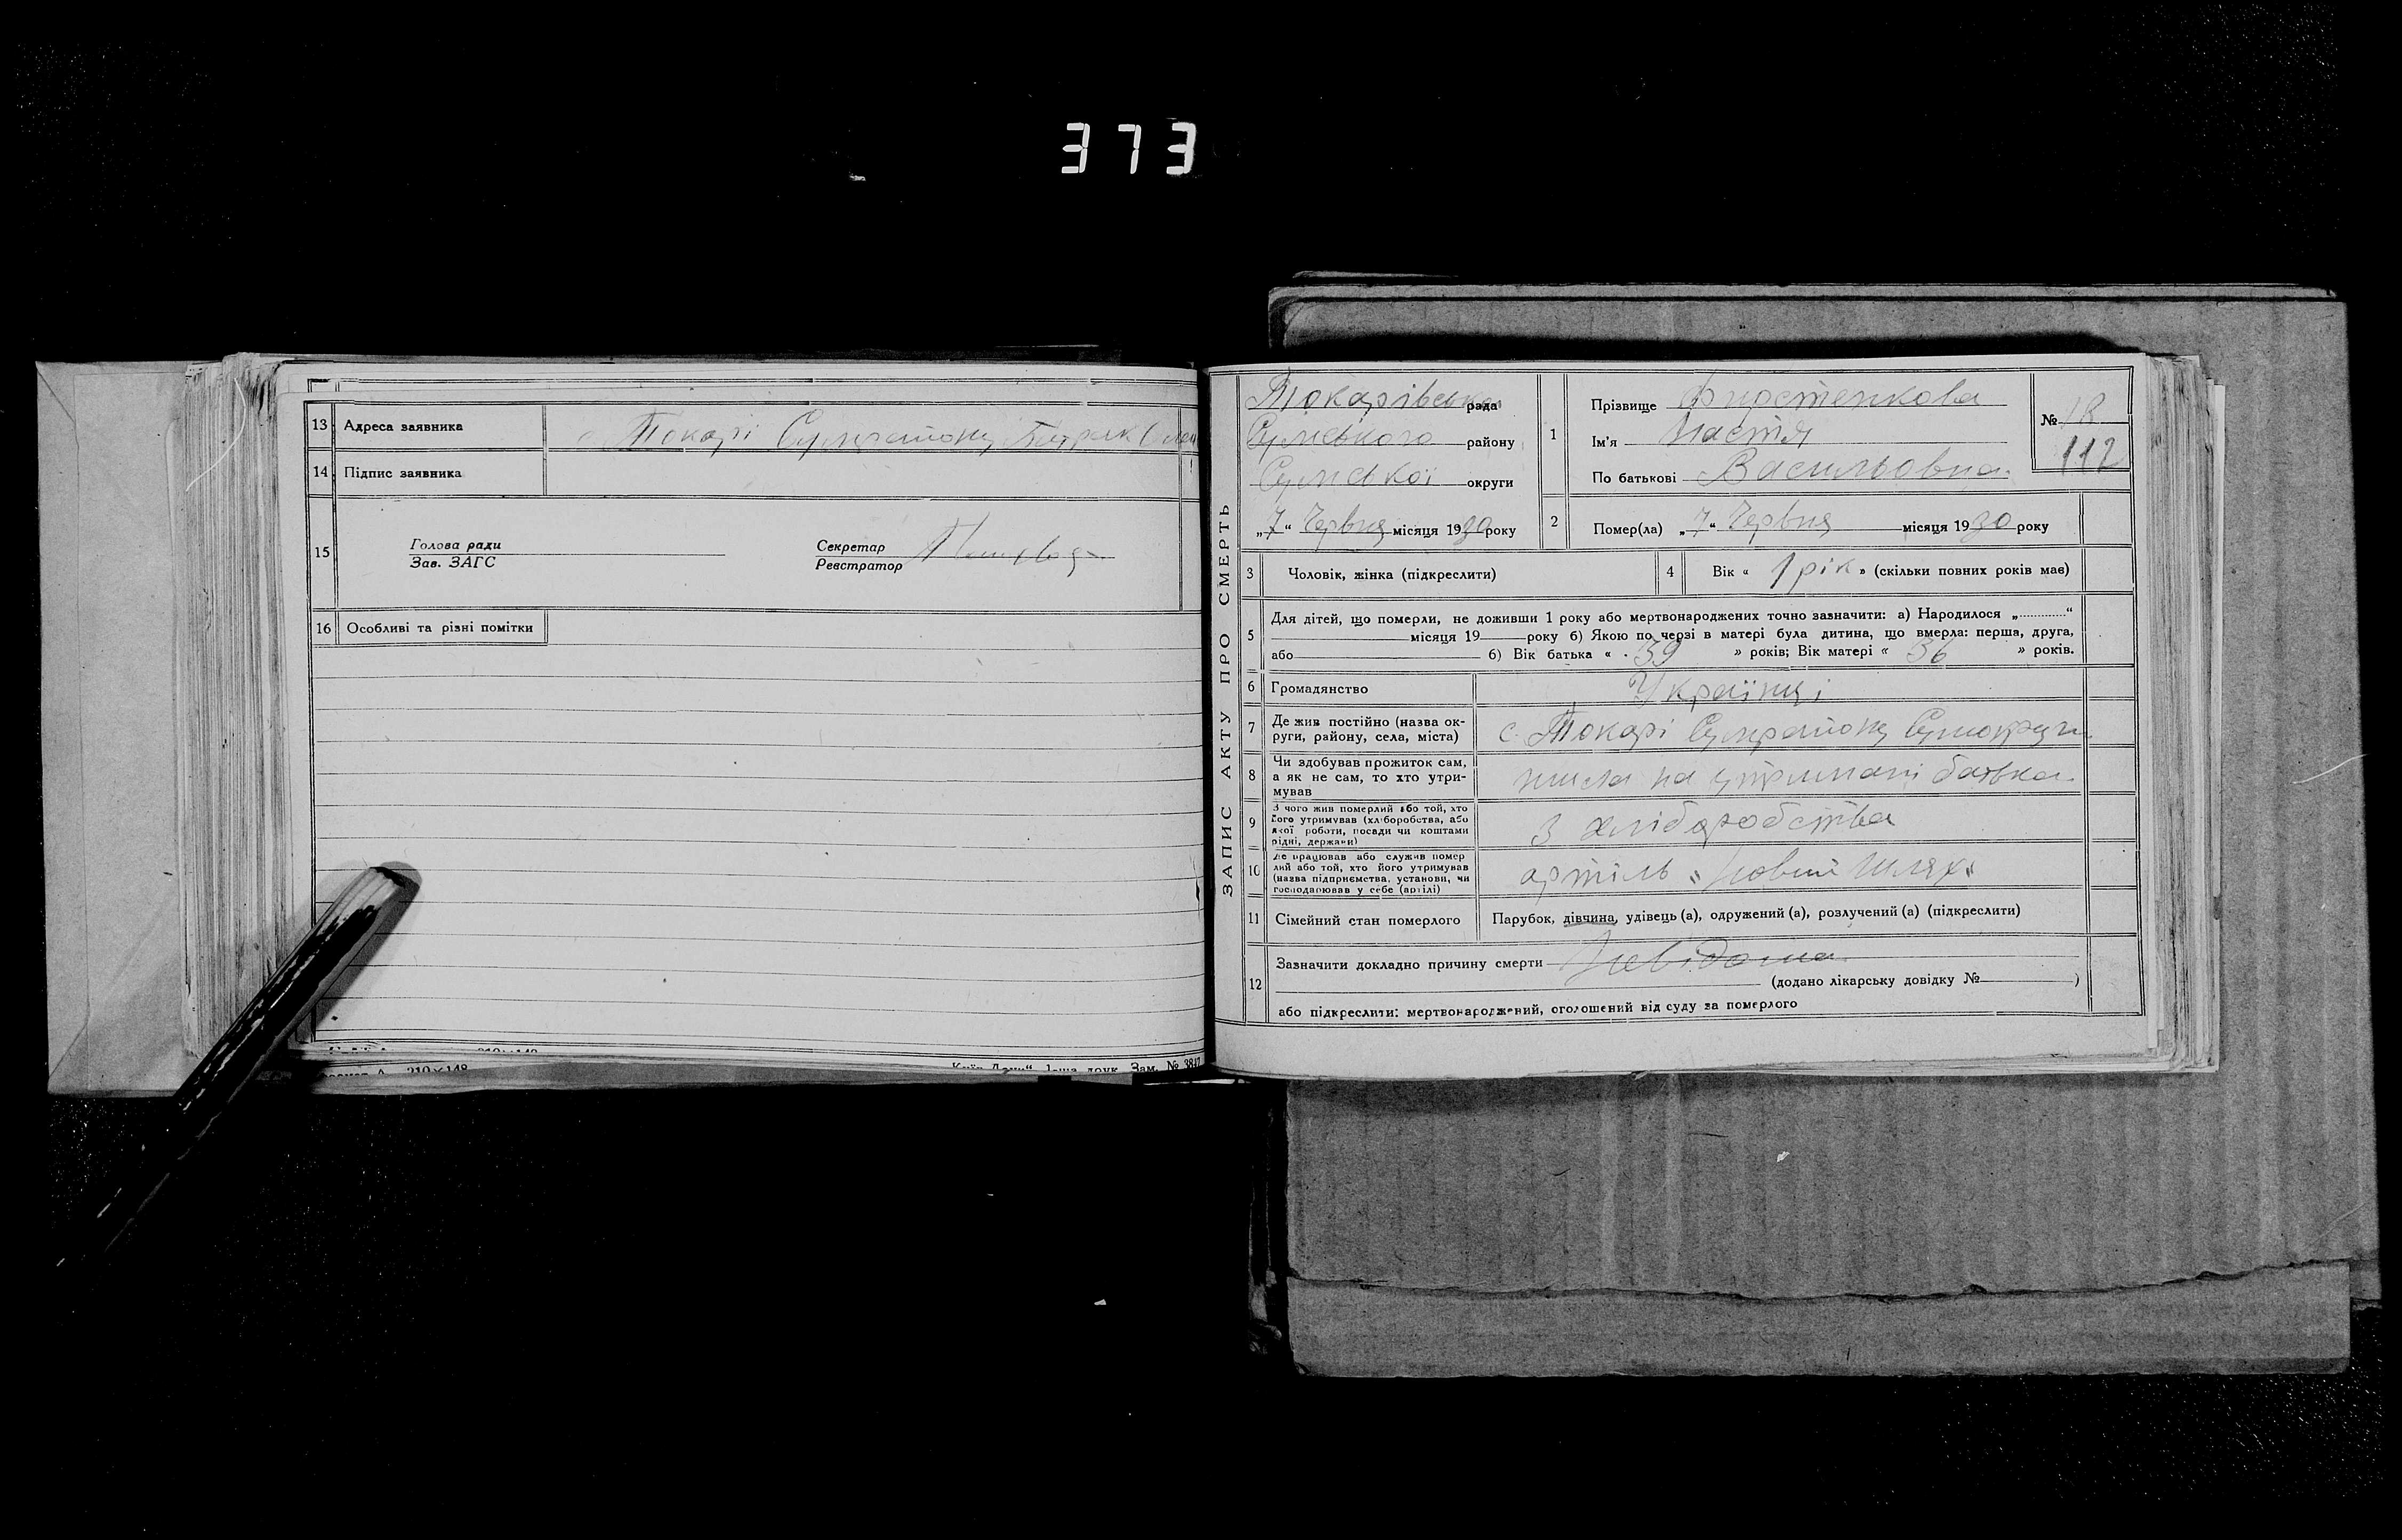 373
13 Адреса заявника с. Токарі Сумрайону
14 Підпис заявника
15 Голова ради
Зав. ЗАГС
Секретар
Реєстратор
16 Особливі та різні помітки
210×148
Зам. № 3817
ЗАПИС АКТУ ПРО СМЕРТЬ
Токарівська рада
Сумського району
Сумської округи
„7“ Червня місяця 1930 року
1 Прізвище
Ім'я Настя
По батькові Васильовна
№ 18
112
2 Помер(ла) „7“ Червня місяця 1930 року
3 Чоловік, жінка (підкреслити)
4 Вік « 1 рік » (скільки повних років має)
5 Для дітей, що померли, не доживши 1 року або мертвонароджених точно зазначити: а) Народилося „ “
місяця 19 року б) Якою по черзі в матері була дитина, що вмерла: перша, друга,
або б) Вік батька « 39 » років; Вік матері « 36 » років.
6 Громадянство Українці
7 Де жив постійно (назва ок-
руги, району, села, міста) с. Токарі Сумрайону Сумокруги
8 Чи здобував прожиток сам,
а як не сам, то хто утри-
мував жила на утримані батька
9 З чого жив померлий або той, хто
його утримував (хліборобства, або
якої роботи, посади чи коштами
рідні, держави) З хліборобства
10 Де працював або служив помер
лий або той, хто його утримував
(назва підприємства, установи, чи
господарював у себе (артілі) артіль „Новий шлях“
11 Сімейний стан померлого Парубок, дівчина, удівець (а), одружений (а), розлучений (а) (підкреслити)
12 Зазначити докладно причину смерти Невідома
(додано лікарську довідку № )
або підкреслити: мертвонароджений, оголошений від суду за померлого